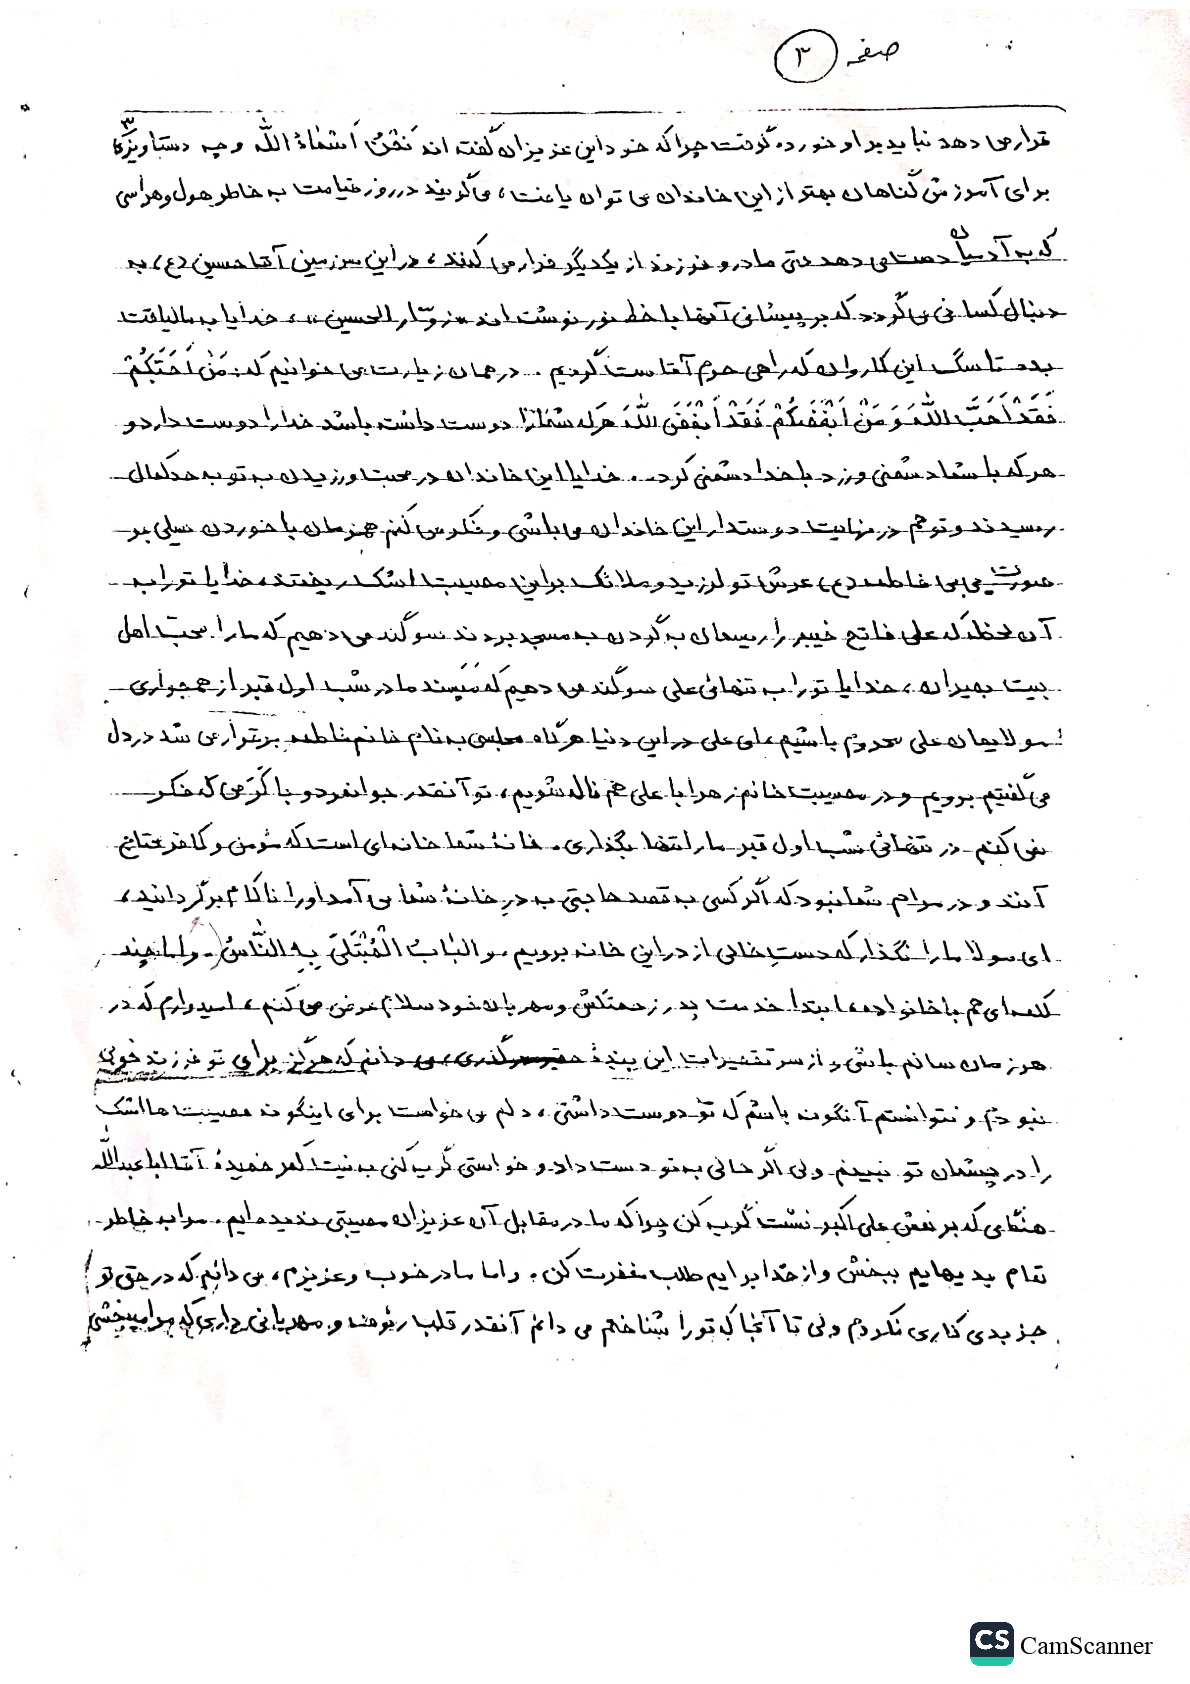 صفحه ۳
قرار می دهد نباید بر او خورده گرفت چرا که خود این عزیزان گفته اند نَحْنُ اَسْمٰاءُ اللّٰه و چه دستاویزی
برای آموزش گناهان بهتر از این خاندان می توان یافت، می گویند در روز قیامت به خاطر هول و هراسی
که به آدمیان دست می دهد حتی مادر و فرزند از یکدیگر فرار می کنند، در این سرزمین آقا حسین (ع) به
دنبال کسانی می گردد که بر پیشانی آنها با خط نور نوشته اند «زوّار الحسین»، خدایا به ما لیاقت
بده تا سگ این کاروان که راهی حرم آقا ست گردیم. در همان زیارت می خوانیم که: مَنْ اَحَبَّکُمْ
فَقَدْ اَحَبَّ اللّٰهَ وَ مَنْ اَبْغَضَکُمْ فَقَدْ اَبْغَضَ اللّٰهَ هر که شما را دوست داشته باشد خدا را دوست دارد و
هر که با شما دشمنی ورزد با خدا دشمنی کرده. خدایا این خاندان در محبت ورزیدن به تو به حد کمال
رسیدند و تو هم در نهایت دوستدار این خاندان می باشی و فکر می کنم همزمان با خوردن سیلی بر
صورت بی بی فاطمه (ع) عرش تو لرزید و ملائک بر این مصیبت اشک ریختند، خدایا تو را به
آن لحظه که علی فاتح خیبر را ریسمان به گردن به مسجد بردند سوگند می دهیم که ما را محبّ اهل
بیت بمیران، خدایا تو را به تنهائی علی سوگند می دهیم که مَپَسند ما در شب اول قبر از همجواری
مولایمان علی محروم باشیم، ای علی در این دنیا هر گاه مجلسی به نام خانم فاطمه برقرار می شد در دل
می گفتیم برویم و در مصیبت خانم زهرا با علی هم ناله شویم، تو آنقدر جوانمرد و با کَرَمی که فکر
نمی کنم در تنهائی شب اول قبر ما را تنها بگذاری. خانۀ شما خانه ای است که مؤمن و کافر محتاج
آنند و در مرام شما نبود که اگر کسی به قصد حاجتی به درِ خانۀ شما می آمد او را ناکام برگردانید،
ای مولا ما را نگذار که دستِ خالی از در این خانه برویم. و الْبٰابُ الْمُبْتَلیٰ بِهِ النّٰاسُ. و اما چند
کلمه ای هم با خانواده، ابتدا خدمت پدر زحمتکش و مهربان خود سلام عرض می کنم، امیدوارم که در
هر زمان سالم باشی و از سر تقصیرات این بندۀ حقیر بگذری، می دانم که هرگز برای تو فرزند خوبی
نبودم و نتوانستم آنگونه باشم که تو دوست داشتی، دلم می خواست برای اینگونه مصیبت ها اشک
را در چشمان تو نبینم ولی اگر حالی به تو دست داد و خواستی گریه کنی به نیت کمر خمیدۀ آقا ابا عبداللّٰه
هنگامی که بر نعش علی اکبر نشست گریه کن چرا که ما در مقابل آن عزیزان مصیبتی ندیده ایم. مرا به خاطر
تمام بدیهایم ببخش و از خدا برایم طلب مغفرت کن. و اما مادر خوب و عزیزم، می دانم که در حق تو
جز بدی کاری نکردم ولی تا آنجا که تو را شناختم می دانم آنقدر قلب رئوف و مهربانی داری که مرا میبخشی
CS CamScanner